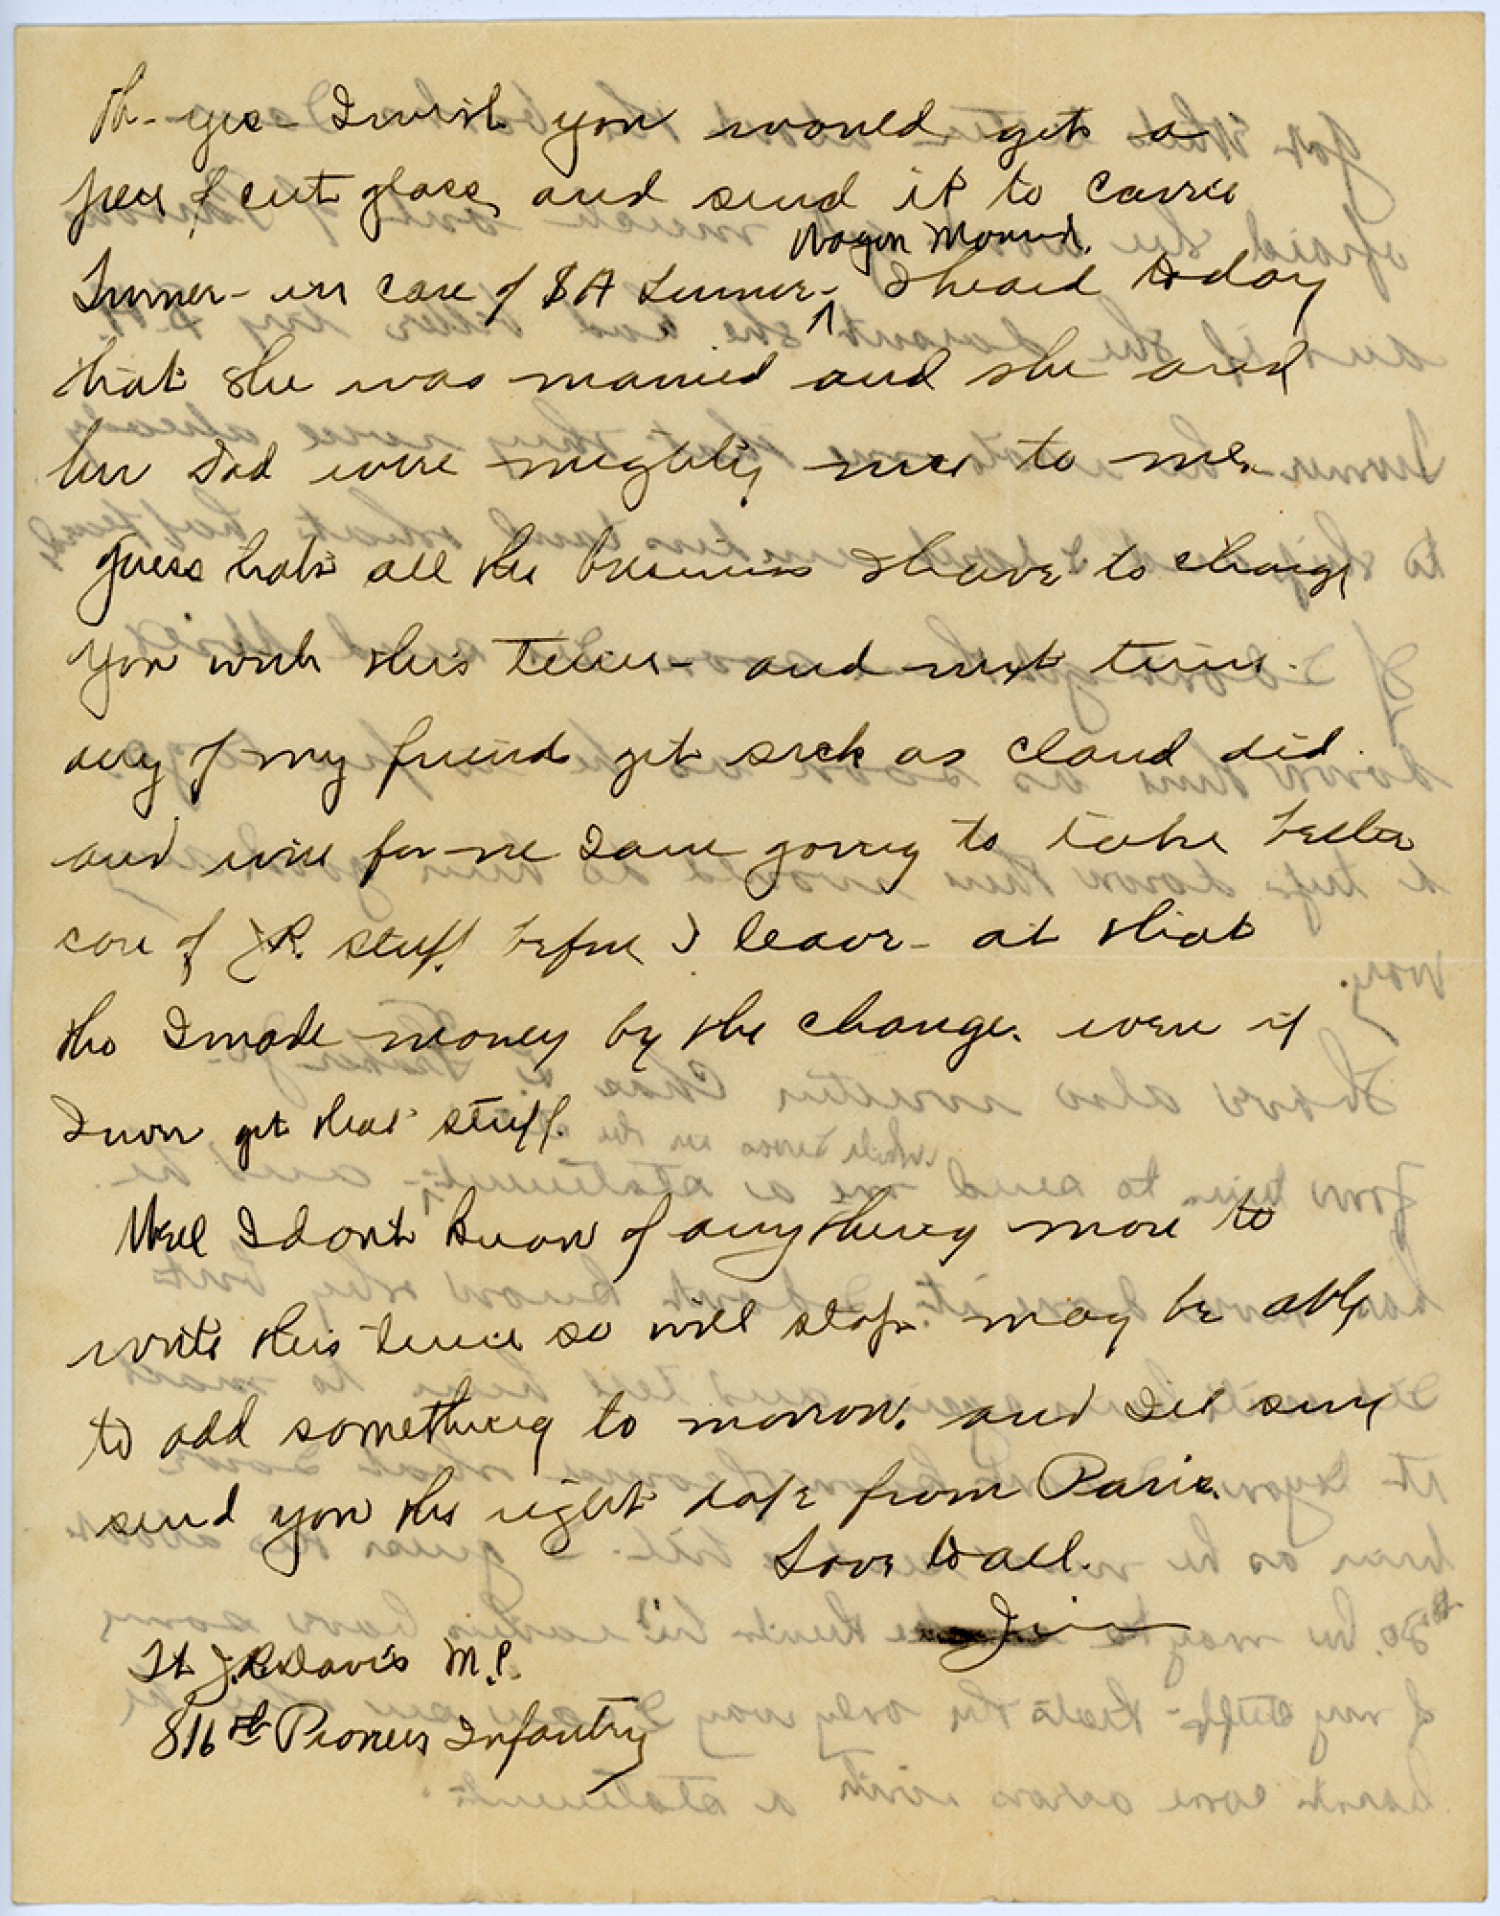 Oh- yes- I wish you would get a
piece of cut glass, and send it to Carrie
Wagon Mound.
Turner- in care of S A Turner- ^ I heard today
that she was married and she and
her Dad were mightily nice to me.
Guess thats all the business I have to charge
you with this time- and next time.
any of my friends get sick as Claud did.
and wire for me I am going to take better
care of J.R. stuff before I leave- at that
tho I made money by the change. even if
I won get that stuff.
Well I dont know of anything more to
write this time so will stop. may be able
to add something to morrow. and I'll sure
send you the right dope from Paris.
Love to all.
Jim
Lt J.R. Davis M.P.
816th Pioneer Infantry